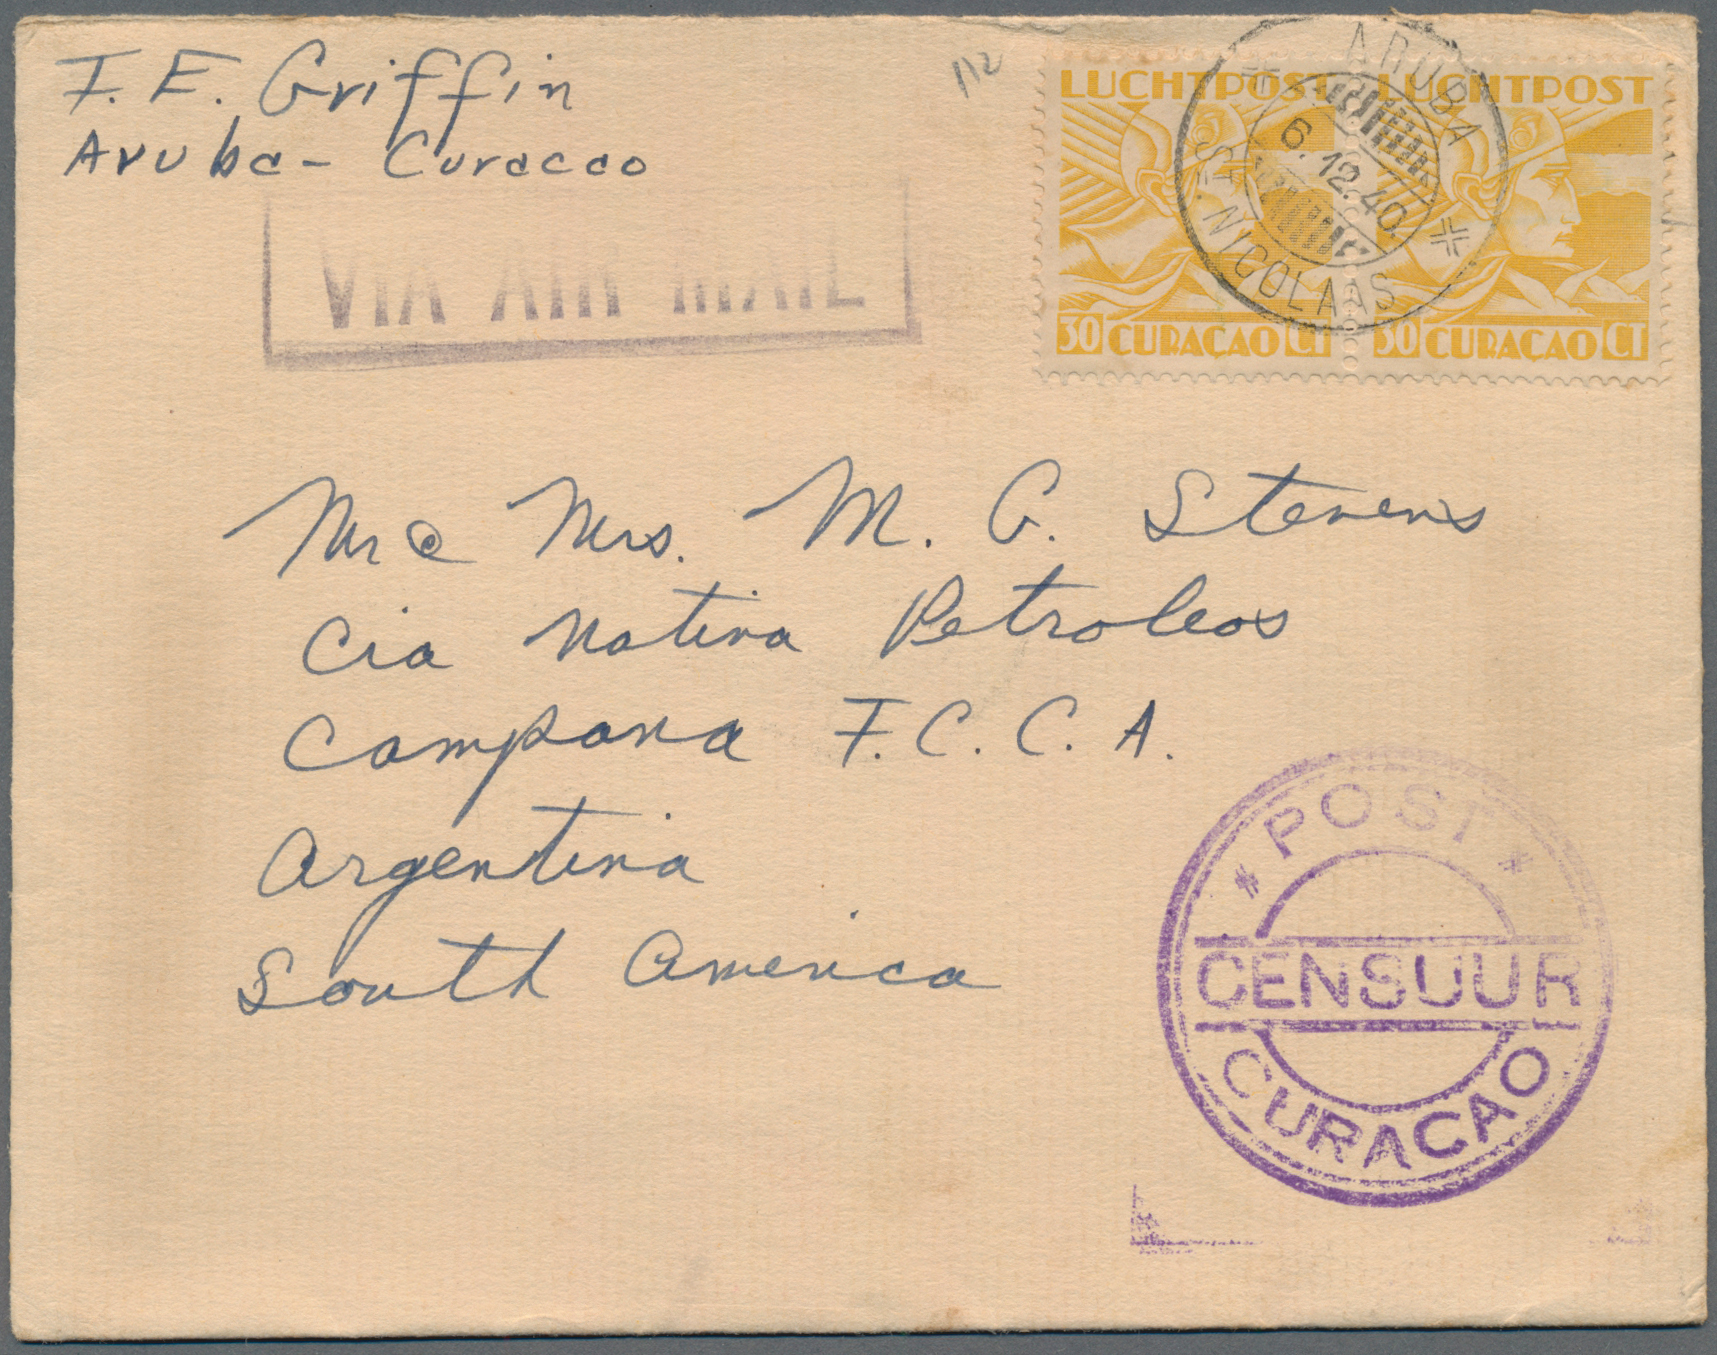 F. E. Griffin
Aruba - Curacao
112
VIA AIR MAIL
LUCHTPOST LUCHTPOST
30 CURAÇAO CT 30 CURAÇAO CT
ARUBA
6.12.40
ST. NICOLAAS
Mr & Mrs. M. G. Stevens
Cia Nativa Petroleos
Campana F.C.C.A.
Argentina
South America
POST
CENSUUR
CURAÇAO